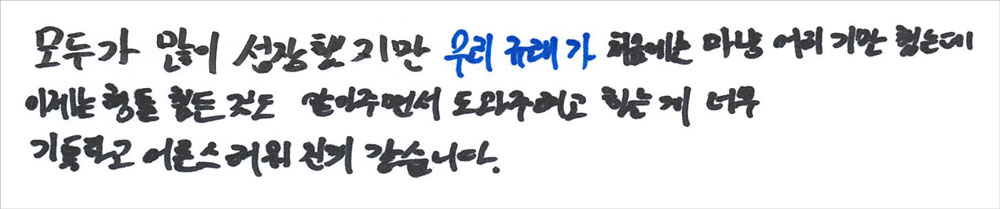 모두가 많이 성장했지만 우리 규래가 처음에는 마냥 어리기만 했는데
이제는 형들 힘든 것도 알아주면서 도와주려고 하는 게 너무
기특하고 어른스러워진거 같습니다.